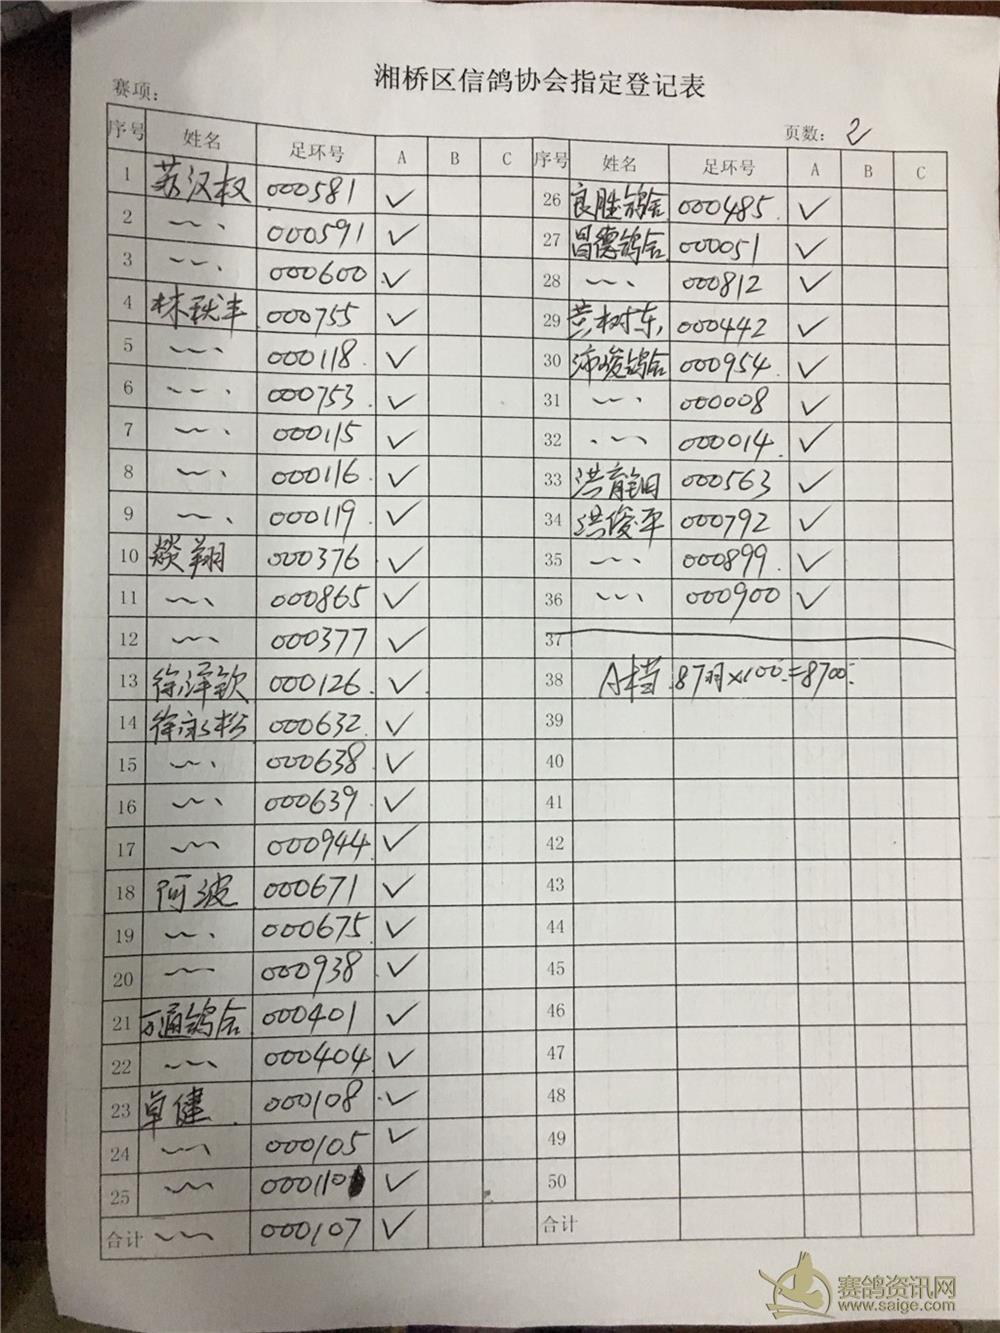 湘桥区信鸽协会指定登记表
赛项:
页数: 2
序号 姓名 足环号 A B C
1 苏汉权 000581 ✓
2 〃 000591 ✓
3 〃 000600 ✓
4 林秋丰 000755 ✓
5 〃 000118 ✓
6 〃 000753 ✓
7 〃 000115 ✓
8 〃 000116 ✓
9 〃 000119 ✓
10 燚翔 000376 ✓
11 〃 000865 ✓
12 〃 000377 ✓
13 徐泽钦 000126 ✓
14 徐永松 000632 ✓
15 〃 000638 ✓
16 〃 000639 ✓
17 〃 000944 ✓
18 阿波 000671 ✓
19 〃 000675 ✓
20 〃 000938 ✓
21 万通鸽舍 000401 ✓
22 〃 000404 ✓
23 卓健 000108 ✓
24 〃 000105 ✓
25 〃 000110 ✓
合计 〃 000107 ✓
序号 姓名 足环号 A B C
26 良胜鸽舍 000485 ✓
27 昌德鸽舍 000051 ✓
28 〃 000812 ✓
29 黄树东 000442 ✓
30 沛峻鸽舍 000954 ✓
31 〃 000008 ✓
32 〃 000014 ✓
33 洪育钿 000563 ✓
34 洪俊平 000792 ✓
35 〃 000899 ✓
36 〃 000900 ✓
37
38 A档 87羽×100=8700
39
40
41
42
43
44
45
46
47
48
49
50
合计
赛鸽资讯网
www.saige.com